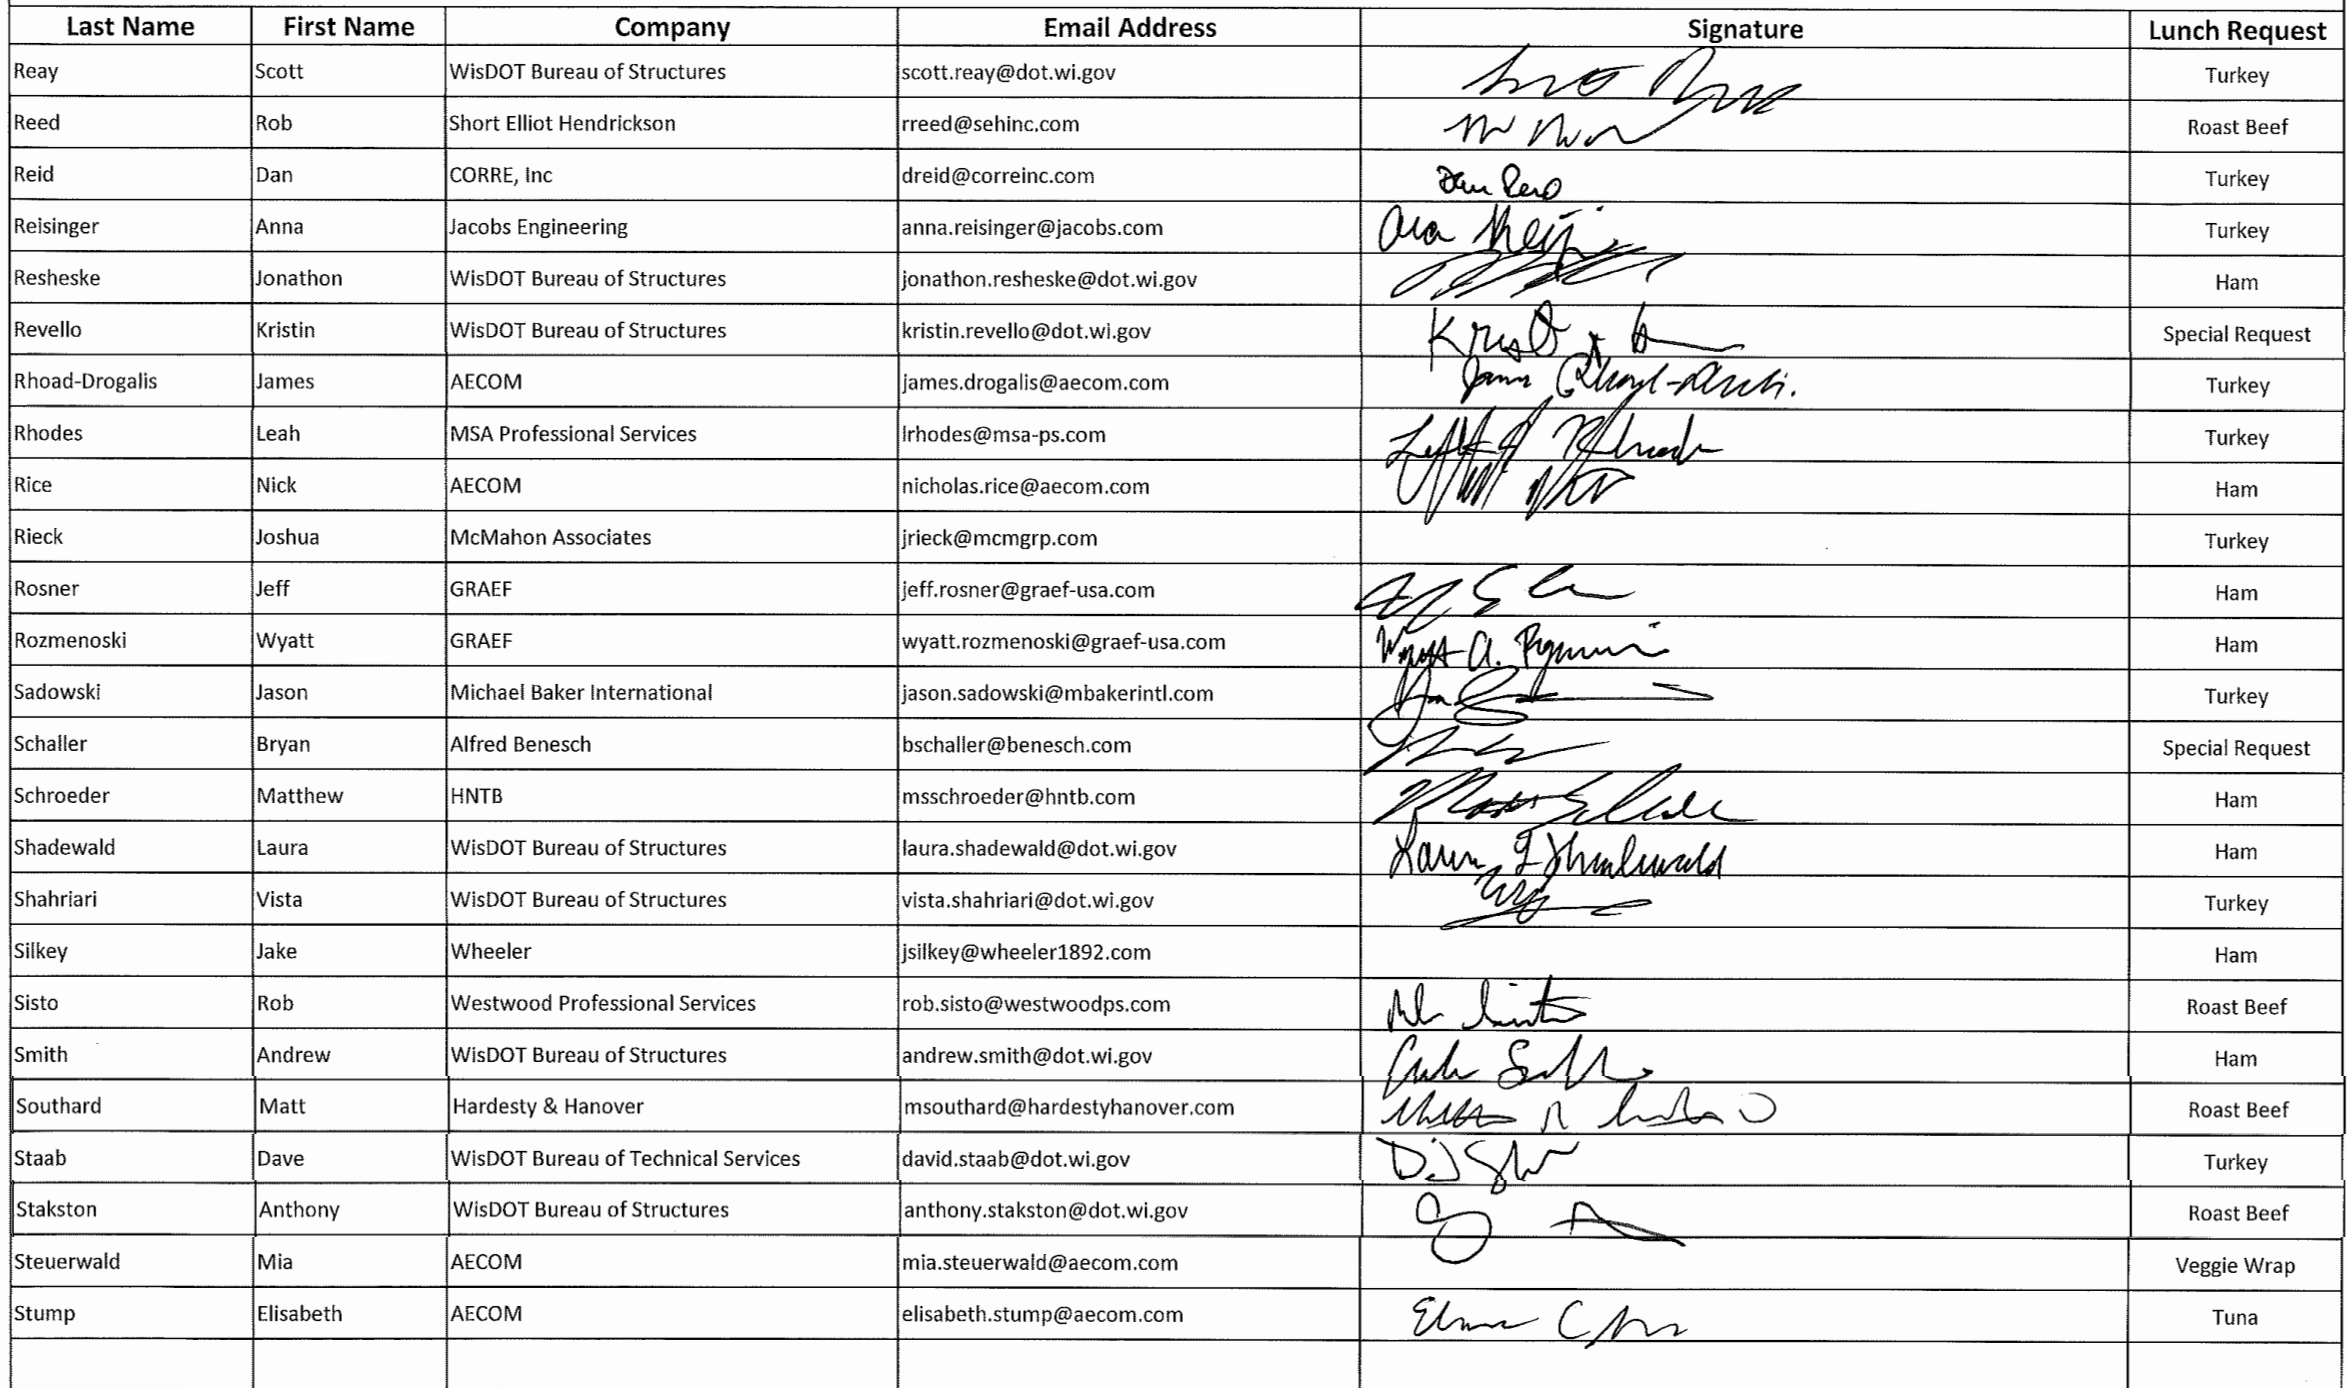 Last Name First Name Company Email Address Signature Lunch Request
Reay Scott WisDOT Bureau of Structures scott.reay@dot.wi.gov Turkey
Reed Rob Short Elliot Hendrickson rreed@sehinc.com Roast Beef
Reid Dan CORRE, Inc dreid@correinc.com Dan Reid Turkey
Reisinger Anna Jacobs Engineering anna.reisinger@jacobs.com Turkey
Resheske Jonathon WisDOT Bureau of Structures jonathon.resheske@dot.wi.gov Ham
Revello Kristin WisDOT Bureau of Structures kristin.revello@dot.wi.gov Special Request
Rhoad-Drogalis James AECOM james.drogalis@aecom.com Turkey
Rhodes Leah MSA Professional Services lrhodes@msa-ps.com Turkey
Rice Nick AECOM nicholas.rice@aecom.com Ham
Rieck Joshua McMahon Associates jrieck@mcmgrp.com Turkey
Rosner Jeff GRAEF jeff.rosner@graef-usa.com Ham
Rozmenoski Wyatt GRAEF wyatt.rozmenoski@graef-usa.com Ham
Sadowski Jason Michael Baker International jason.sadowski@mbakerintl.com Turkey
Schaller Bryan Alfred Benesch bschaller@benesch.com Special Request
Schroeder Matthew HNTB msschroeder@hntb.com Ham
Shadewald Laura WisDOT Bureau of Structures laura.shadewald@dot.wi.gov Ham
Shahriari Vista WisDOT Bureau of Structures vista.shahriari@dot.wi.gov Turkey
Silkey Jake Wheeler jsilkey@wheeler1892.com Ham
Sisto Rob Westwood Professional Services rob.sisto@westwoodps.com Roast Beef
Smith Andrew WisDOT Bureau of Structures andrew.smith@dot.wi.gov Ham
Southard Matt Hardesty & Hanover msouthard@hardestyhanover.com Roast Beef
Staab Dave WisDOT Bureau of Technical Services david.staab@dot.wi.gov Turkey
Stakston Anthony WisDOT Bureau of Structures anthony.stakston@dot.wi.gov Roast Beef
Steuerwald Mia AECOM mia.steuerwald@aecom.com Veggie Wrap
Stump Elisabeth AECOM elisabeth.stump@aecom.com Tuna